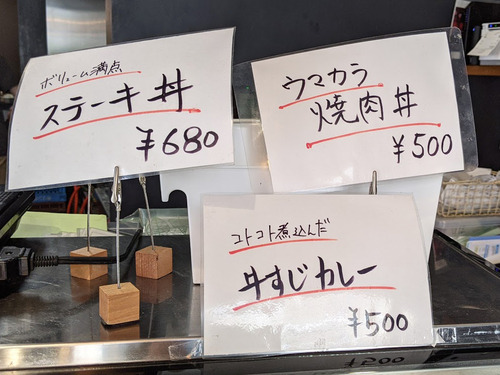 ボリューム満点
ステーキ丼
¥680
ウマカラ
焼肉丼
¥500
コトコト煮込んだ
牛すじカレー
¥500